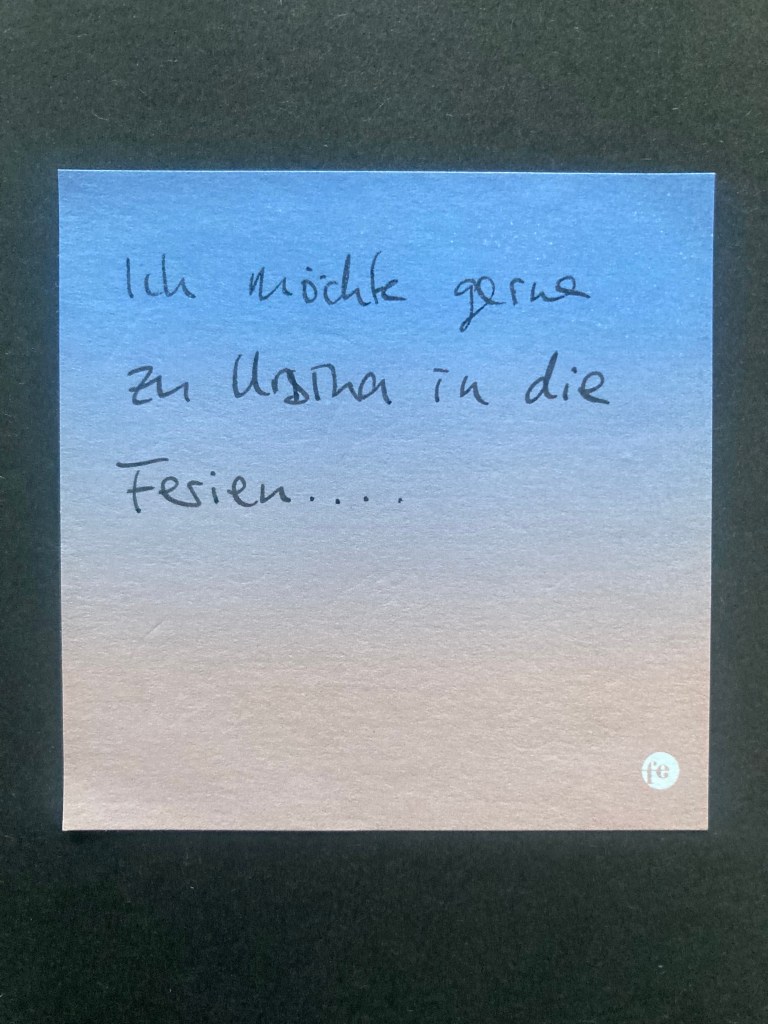 Ich möchte gerne
zu Ursina in die
Ferien.....
fe